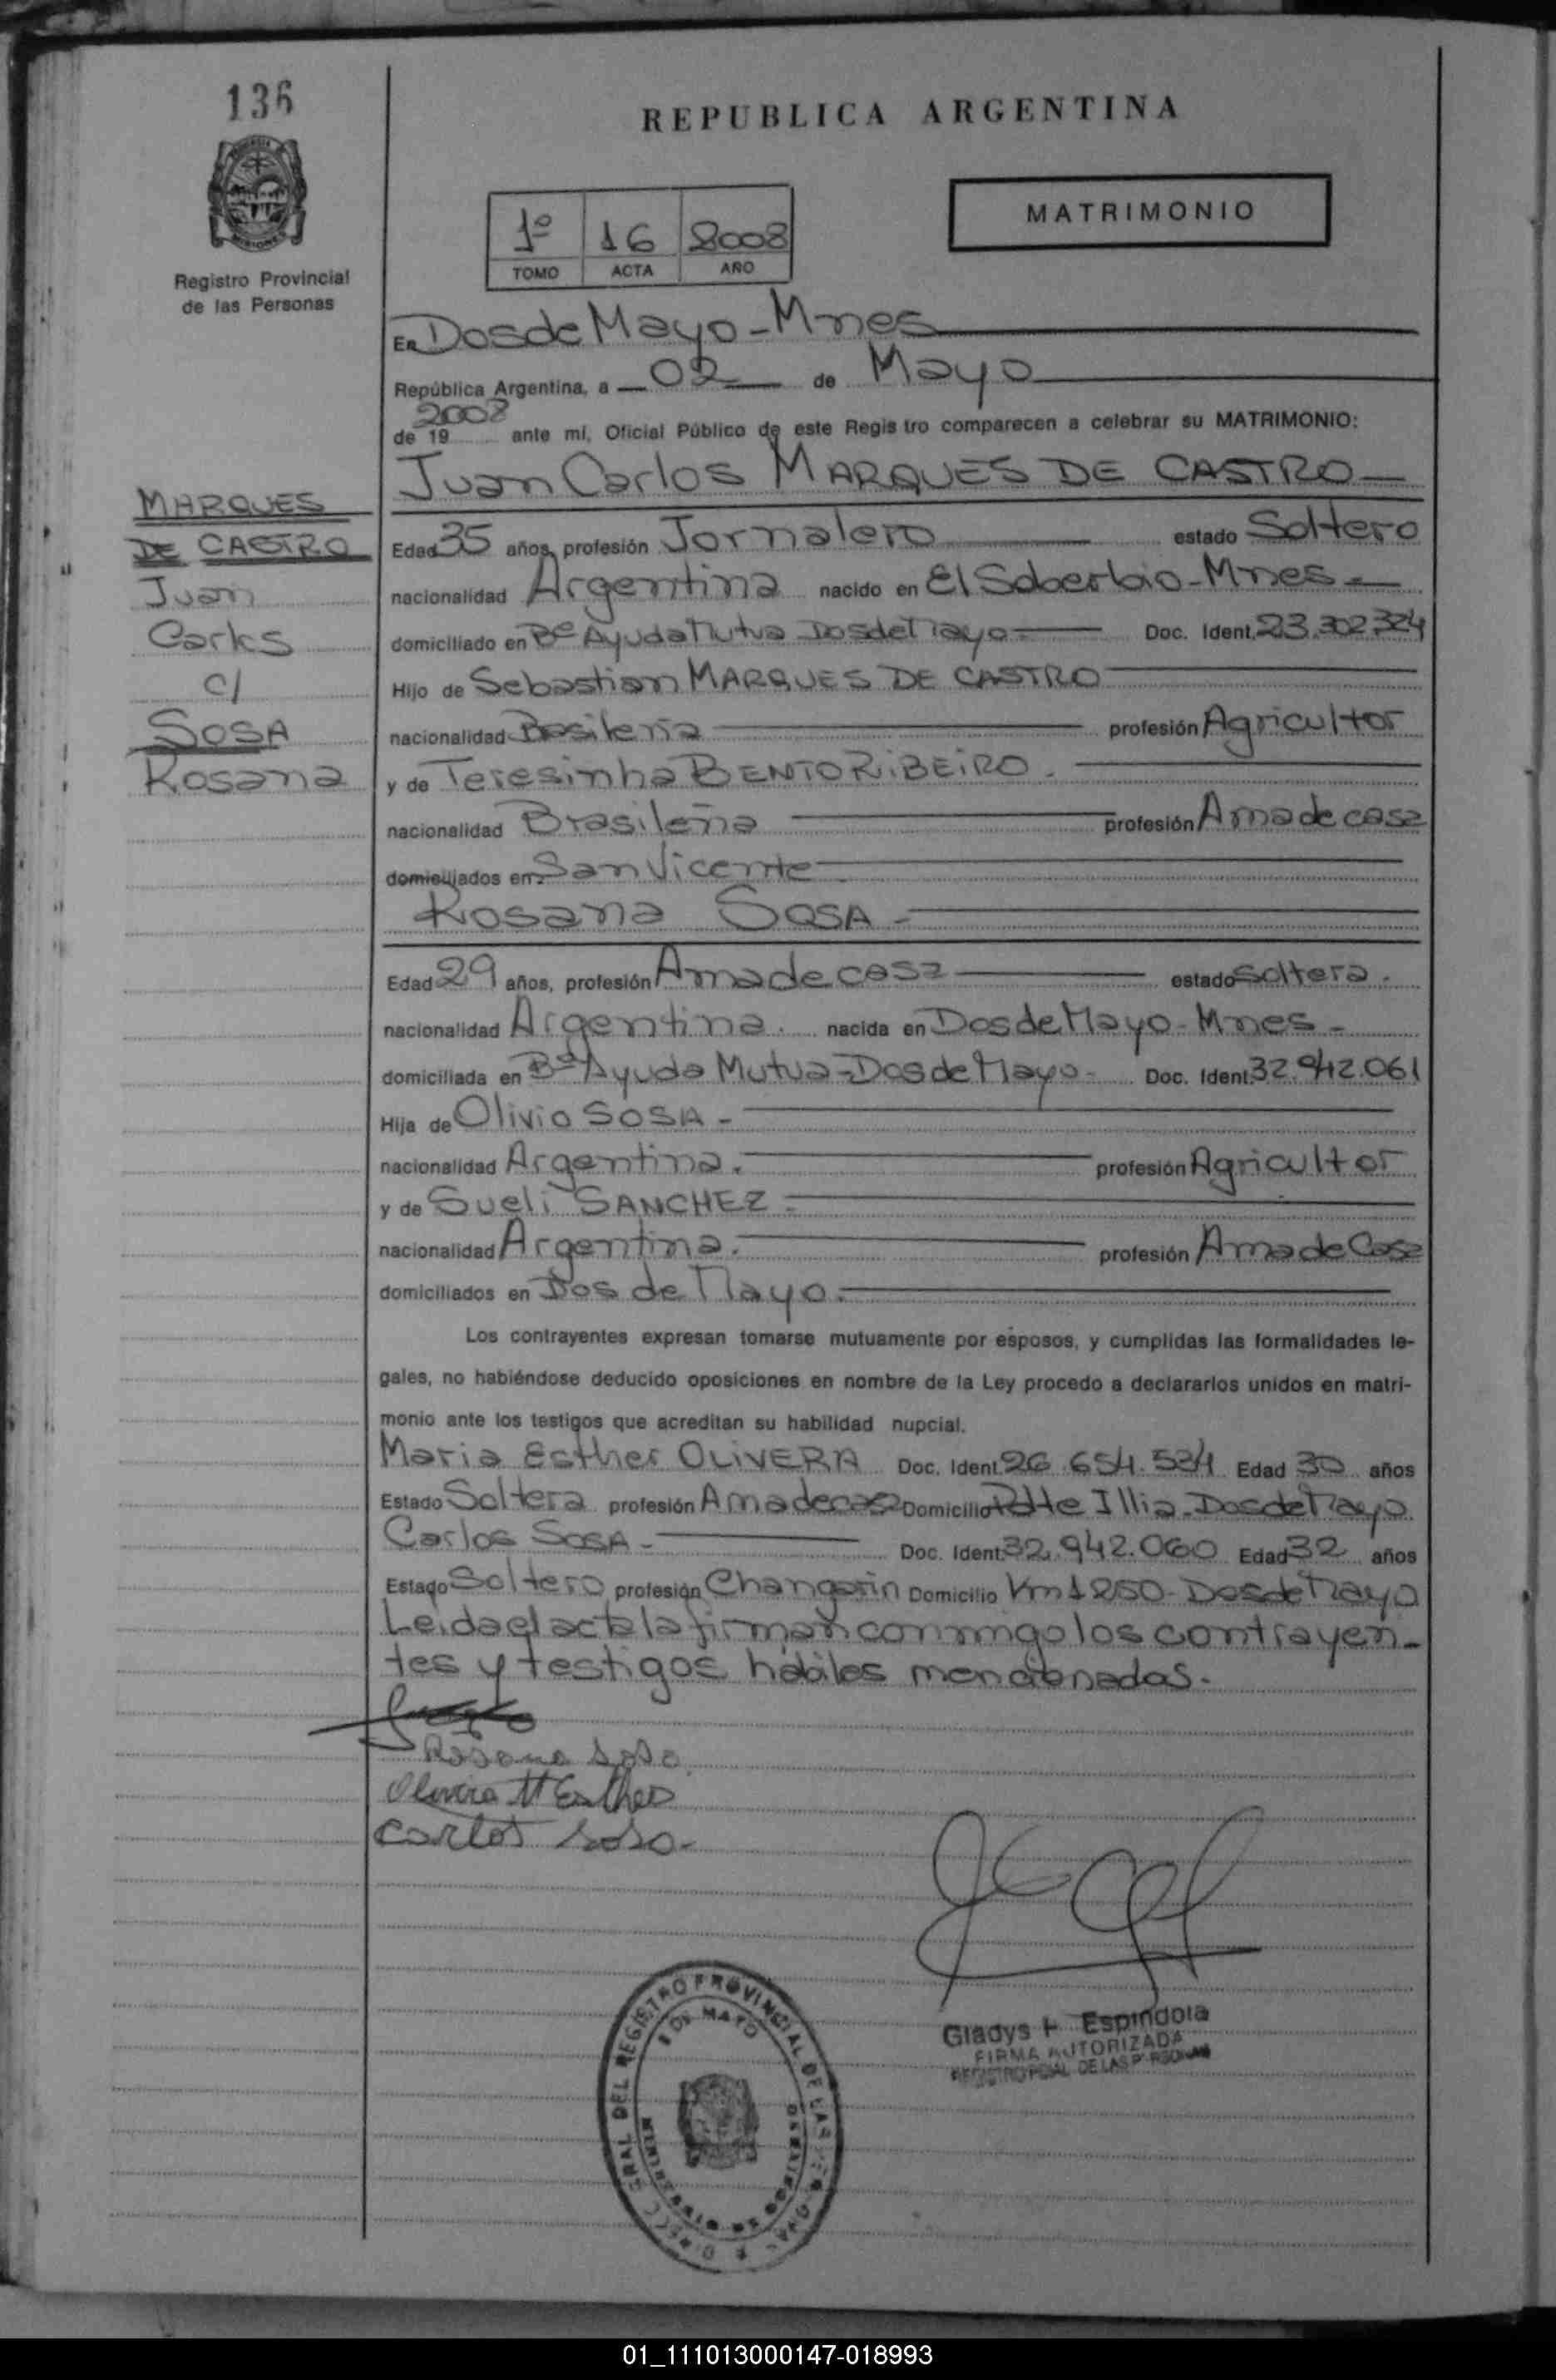 136
REPUBLICA ARGENTINA
MATRIMONIO
1º 16 2008
TOMO ACTA AÑO
Registro Provincial
de las Personas
En Dos de Mayo - Mnes
República Argentina, a 02 de Mayo
2008
de 19 ante mi, Oficial Público de este Regis tro comparecen a celebrar su MATRIMONIO:
Juan Carlos MARQUES DE CASTRO
MARQUES
DE CASTRO
Juan
Carlos
c/
SOSA
Rosana
Edad 35 años, profesión Jornalero estado Soltero
nacionalidad Argentina nacido en El Soberbio - Mnes -
domiciliado en Bº Ayuda Mutua Dos de Mayo Doc. Ident. 23.302.324
Hijo de Sebastian MARQUES DE CASTRO
nacionalidad Brasileña profesión Agricultor
y de Teresinha BENTO RIBEIRO.
nacionalidad Brasileña profesión Ama de casa
domiciliados en San Vicente
Rosana SOSA -
Edad 29 años, profesión Ama de casa estado Soltera.
nacionalidad Argentina. nacida en Dos de Mayo - Mnes -
domiciliada en Bº Ayuda Mutua - Dos de Mayo - Doc. Ident. 32.942.061
Hija de Olivio SOSA -
nacionalidad Argentina. profesión Agricultor
y de Sueli SANCHEZ -
nacionalidad Argentina. profesión Ama de Casa
domiciliados en Dos de Mayo.
Los contrayentes expresan tomarse mutuamente por esposos, y cumplidas las formalidades le-
gales, no habiéndose deducido oposiciones en nombre de la Ley procedo a declararlos unidos en matri-
monio ante los testigos que acreditan su habilidad nupcial.
Maria Esther OLIVERA Doc. Ident. 26.654.534 Edad 30 años
Estado Soltera profesión Ama de casa Domicilio Pdte Illia - Dos de Mayo
Carlos SOSA - Doc. Ident. 32.942.060 Edad 32 años
Estado Soltero profesión Changarin Domicilio Km 1250 - Dos de Mayo
Leida el acta la firman conmigo los contrayen-
tes y testigos hábiles mencionados.
Rosana Sosa
Olivera Mª Esther
Carlos Sosa -
Gladys Espindola
FIRMA AUTORIZADA
REGISTRO PCIAL DE LAS PERSONAS
DEL REGISTRO PROVINCIAL DE LAS
2 DE MAYO
01_111013000147-018993